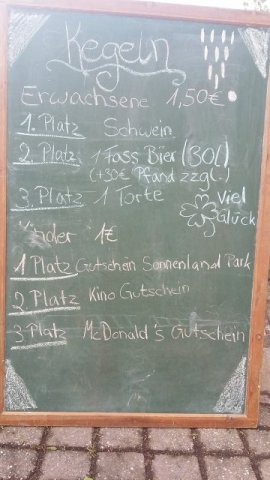 Kegeln
Erwachsene 1,50€
1. Platz Schwein
2. Platz 1 Fass Bier (30l)
(+30€ Pfand zzgl.)
3. Platz 1 Torte
Viel
Glück
Kinder 1€
1 Platz Gutschein Sonnenland Park
2 Platz Kino Gutschein
3 Platz McDonald's Gutschein